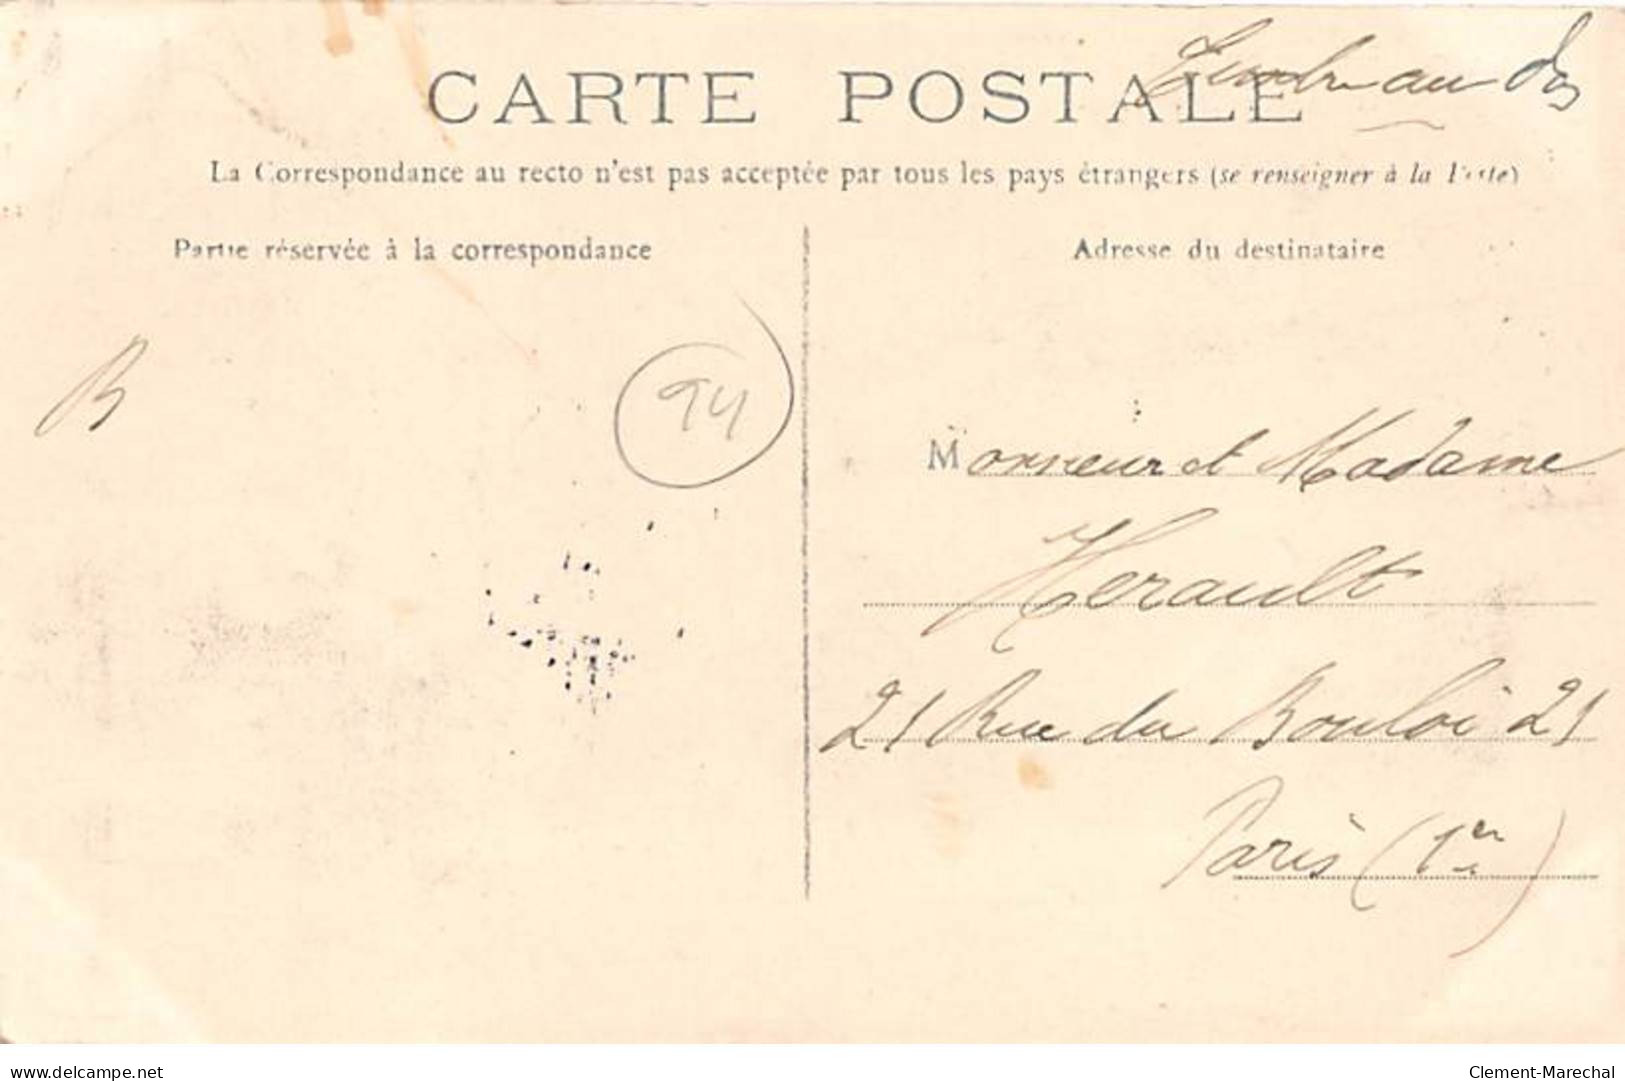 Timbre au dos
CARTE POSTALE
La Correspondance au recto n'est pas acceptée par tous les pays étrangers (se renseigner à la Poste)
Partie réservée à la correspondance
Adresse du destinataire
B
94
Monsieur et Madame
Herault
21 Rue du Bouloi 21
Paris (1er)
delcampe.net
Clement-Marechal